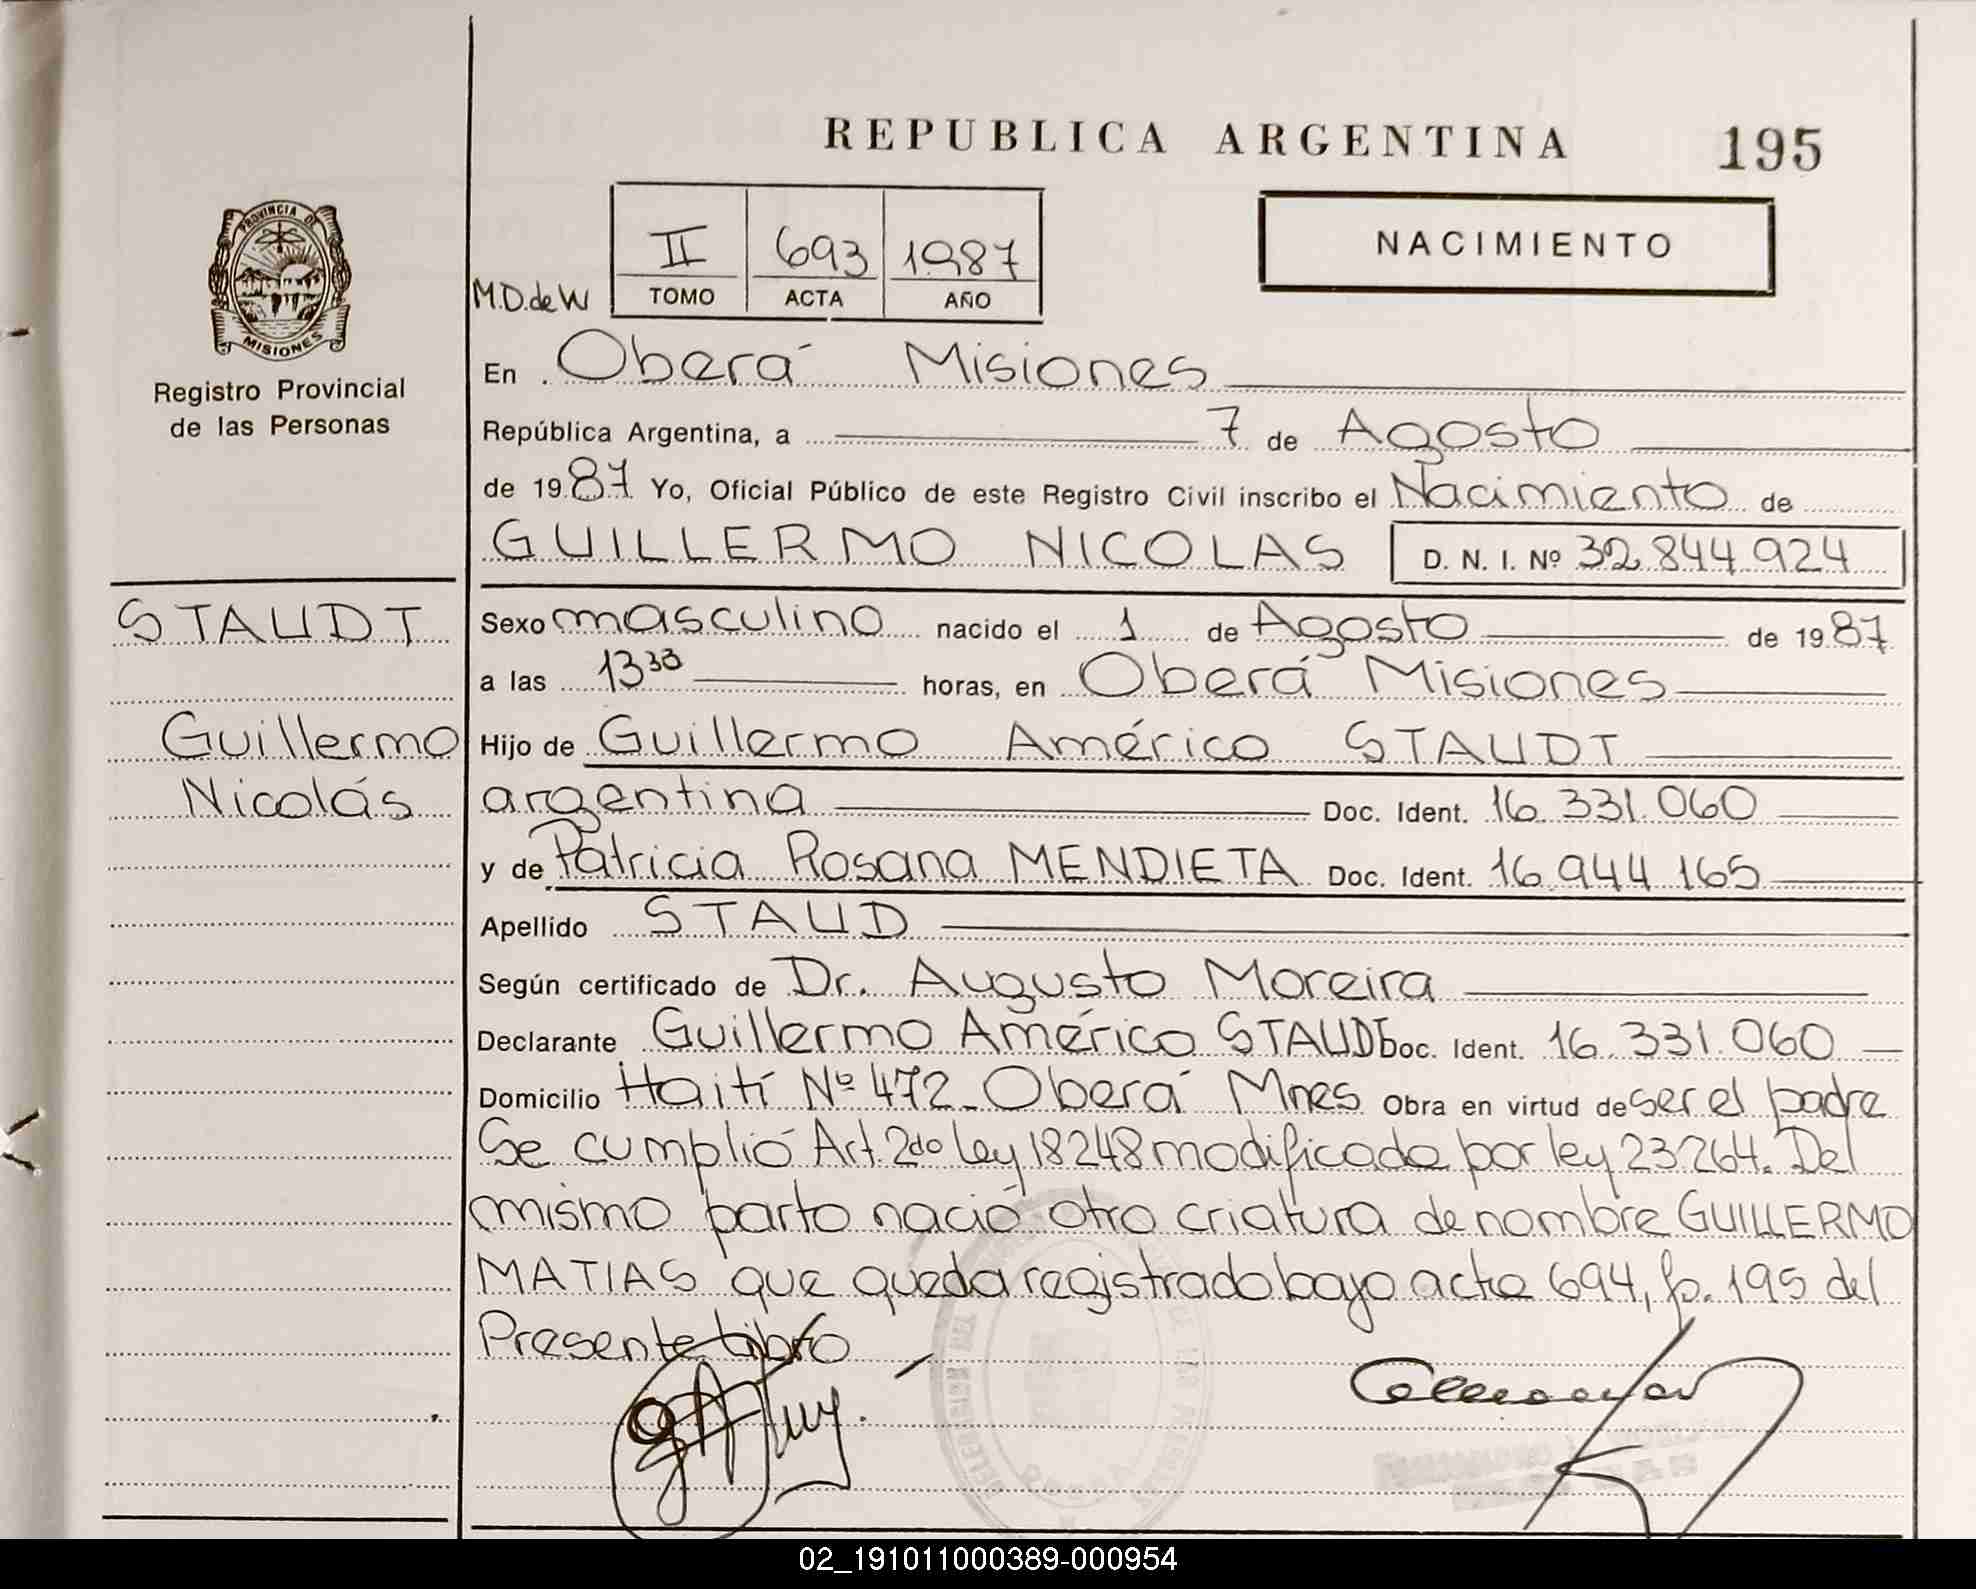 REPUBLICA ARGENTINA 195
PROVINCIA DE
MISIONES
Registro Provincial
de las Personas
II 693 1987
TOMO ACTA AÑO
NACIMIENTO
M.D. de W
En Oberá Misiones
República Argentina, a 7 de Agosto
de 1987 Yo, Oficial Público de este Registro Civil inscribo el Nacimiento de
GUILLERMO NICOLAS D. N. I. Nº 32.844.924
STAUDT
Guillermo
Nicolás
Sexo masculino nacido el 1 de Agosto de 1987
a las 13 30 horas, en Oberá Misiones
Hijo de Guillermo Américo STAUDT
argentina Doc. Ident. 16.331.060
y de Patricia Rosana MENDIETA Doc. Ident. 16.944.165
Apellido STAUD
Según certificado de Dr. Augusto Moreira
Declarante Guillermo Américo STAUDT Doc. Ident. 16.331.060
Domicilio Haití Nº 472 - Oberá Mnes Obra en virtud de ser el padre
Se cumplió Art. 2do ley 18248 modificada por ley 23264. Del
mismo parto nació otra criatura de nombre GUILLERMO
MATIAS que queda registrado bajo acta 694, fo. 195 del
Presente Libro
02_191011000389-000954